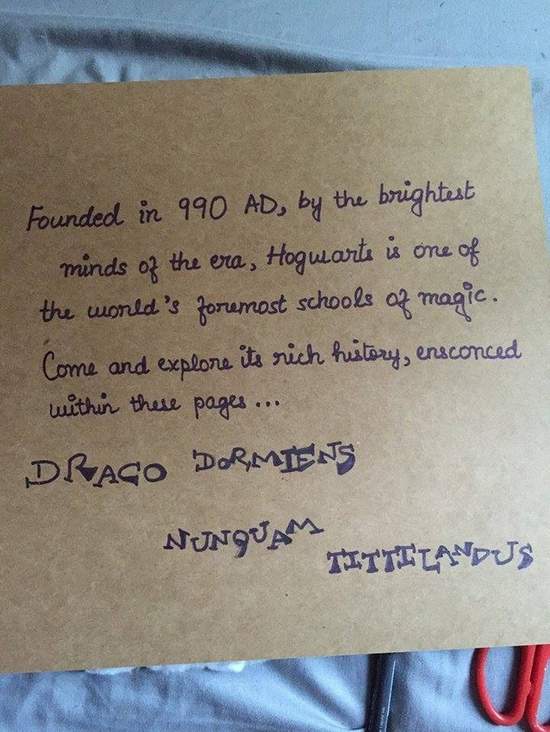 Founded in 990 AD, by the brightest
minds of the era, Hogwarts is one of
the world's foremost schools of magic.
Come and explore its rich history, ensconced
within these pages ...
DRACO DORMIENS
NUNQUAM
TITTILANDUS